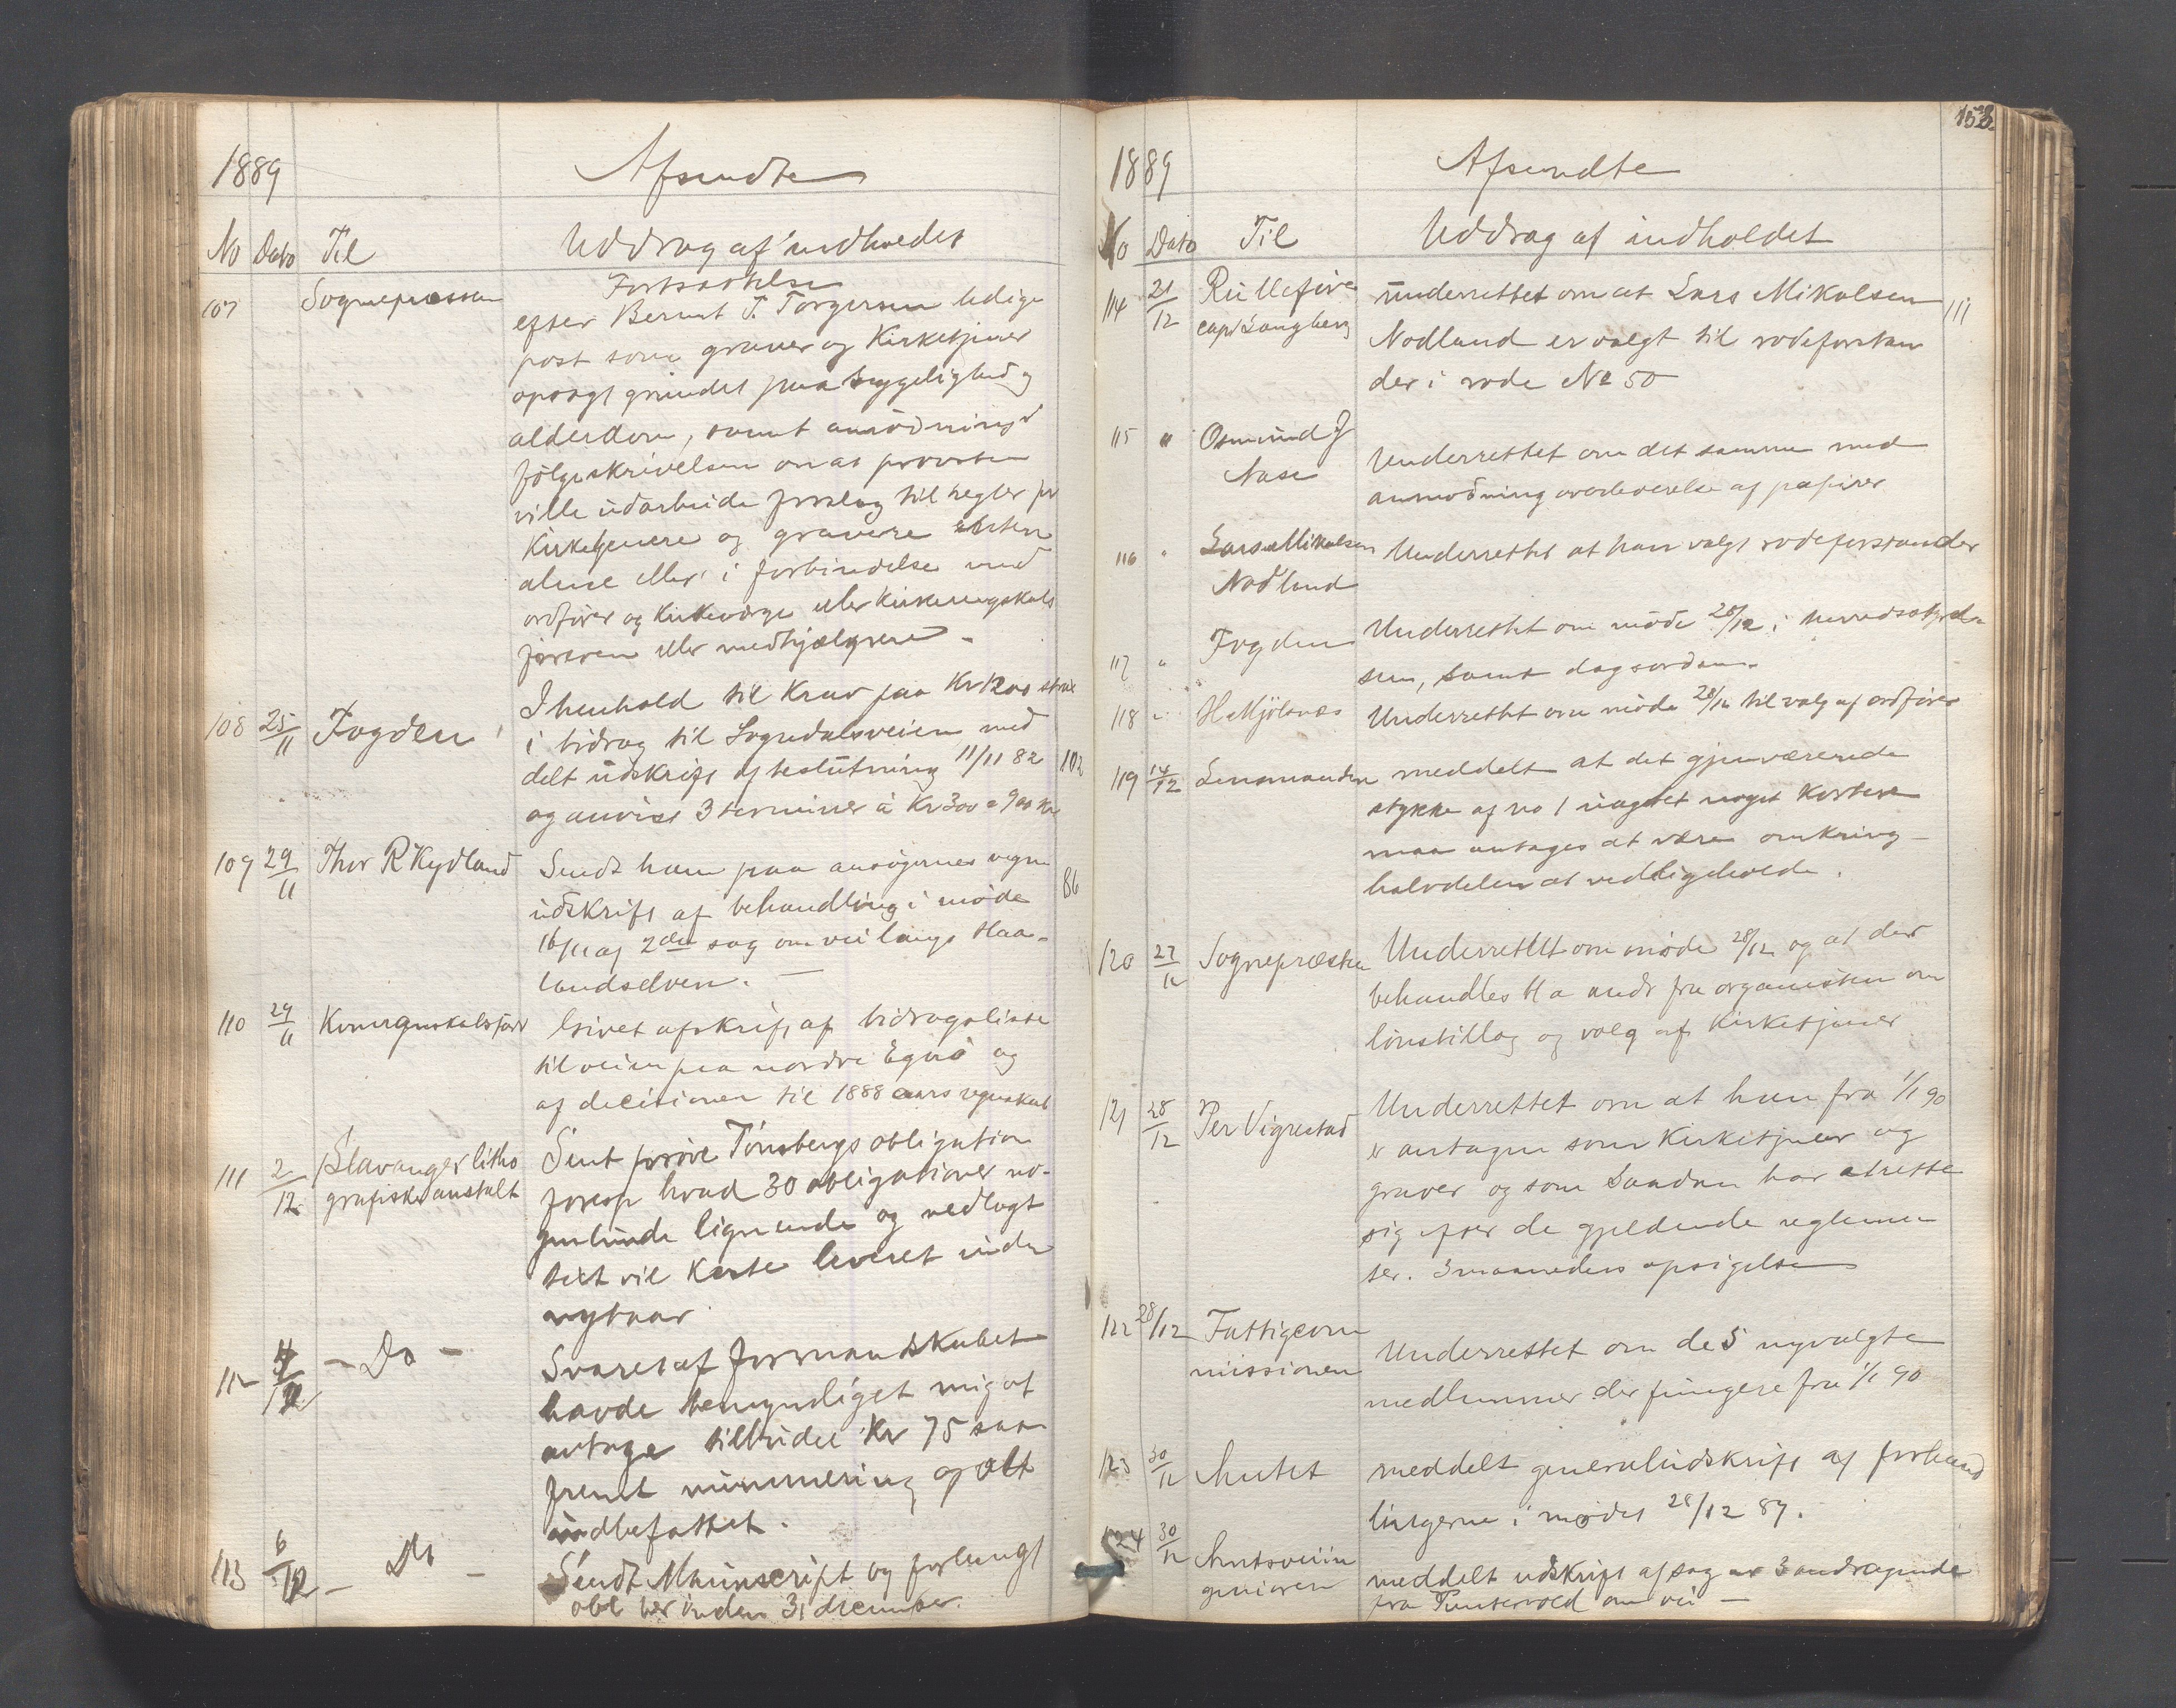 1889 Afsendte
No Dato Til Uddrag af indholdet
107 Sognepræsten Fortsættelse
efter Bernt T. Torgersen ledige
post som graver og Kirketjener
opsagt grundet paa sygelighed og
alderdom, samt anmodning i
følgeskrivelsen om at provsten
ville udarbeide forslag til regler for
Kirketjenere og gravere enten
alene eller i forbindelse med
ordfører og Kirkeværge eller Kirkeregnskabs
føreren eller medhjælpere -
108 25/11 Fogden I henhold til Krav paa Kr 1200 strax
i bidrag til Sogndalsveien med
delt udskrift af beslutning 11/11 82 102
og anvist 3 terminer à Kr 300 = 900 Kr
109 29/11 Thor R Kydland Sendt ham paa ansøgernes vegne 86
udskrift af behandling i møde
16/11 af 2den sag om vei langs Haa-
landselven. -
110 29/11 Kemnerregnskabsfører Givet afskrift af bidragsliste
til veien paa nordre Egerø og
af decisioner til 1888 aars regnskab
111 2/12 Stavanger litho Sent prøve Tønsbergs obligation
grafiske anstalt foresp hvad 30 obligationer no-
genlunde lignende og vedlagt
text vil Koste leveret inden
nytaar.
112 4/12 - Do - Svaret af formandskabet
havde bemyndiget mig at
antage tilbudet Kr 75 saa
fremt nummering og alt
indbefattet.
113 6/12 - Do - Sendt Manuscript og forlangt
obl her inden 31 december.
153.
1889 Afsendte
No Dato Til Uddrag af indholdet
114 21/12 Rullefører underrettet om at Lars Mikalsen 111
capt Langberg Nodland er valgt til rodeforstan
der i rode No 50
115 " Osmund J
Nase Underrettet om det samme med
anmodning overleverelse af papirer
116 " Lars Mikalsen Underrettet at han valgt rodeforstander
Nodland
117 " Fogden Underrettet om møde 28/12 i herredsstyrel
sen, samt dagsorden.
118 " H Mjølsnes Underrettet om møde 28/12 til valg af ordfører
119 14/12 Lensmanden meddelt at det gjenværende
stykke af no 1 uagtet noget Kortere
maa antages at være omkring
halvdelen at vedligeholde.
120 27/12 Sognepræsten Underrettet om møde 28/12 og at der
behandles bl a andr fra organisten om
lønstillæg og valg af Kirketjener
121 28/12 Per Vigrestad Underrettet om at han fra 1/1 90
er antagen som Kirketjener og
graver og som saadan har at rette
sig efter de gjeldende reglemen
ter. 3 maaneders opsigelse
122 28/12 Fattigcom
missionen Underrettet om de 5 nyvalgte
medlemmer der fungere fra 1/1 90
123 30/12 Amtet meddelt generaludskrift af forhand
lingerne i mødet 28/12 89.
124 30/12 Amtsveiin
geniøren meddelt udskrift af sag 3 andragende
fra Puntervold om vei -